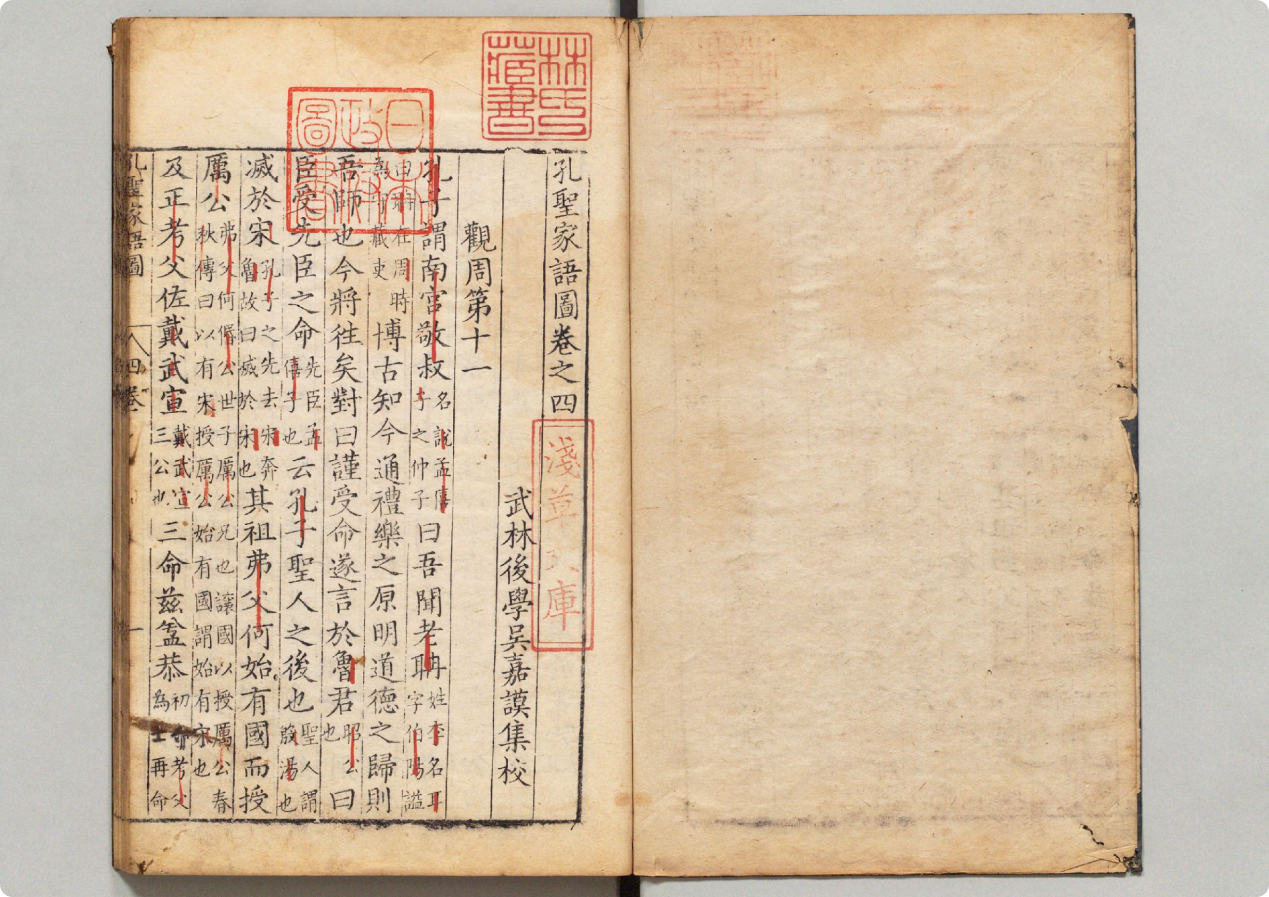 林氏藏書
日本政府圖書
淺草文庫
孔聖家語圖卷之四
武林後學吳嘉謨集校
觀周第十一
孔子謂南宮敬叔名說孟僖子之仲子曰吾聞老聃姓李名耳字伯陽謚
曰聃在周時為守藏吏博古知今通禮樂之原明道德之歸則
吾師也今將徃矣對曰謹受命遂言於魯君昭公也曰
臣受先臣之命先臣孟僖子也云孔子聖人之後也聖人謂殷湯也
滅於宋孔子之先去宋奔魯故曰滅於宋也其祖弗父何始有國而授
厲公弗父何僖公世子厲公兄也讓國以授厲公春秋傳曰以有宋授厲公始有國謂始有宋也
及正考父佐戴武宣戴武宣三公也三命茲益恭初命考父為士再命
孔聖家語圖 四卷 一